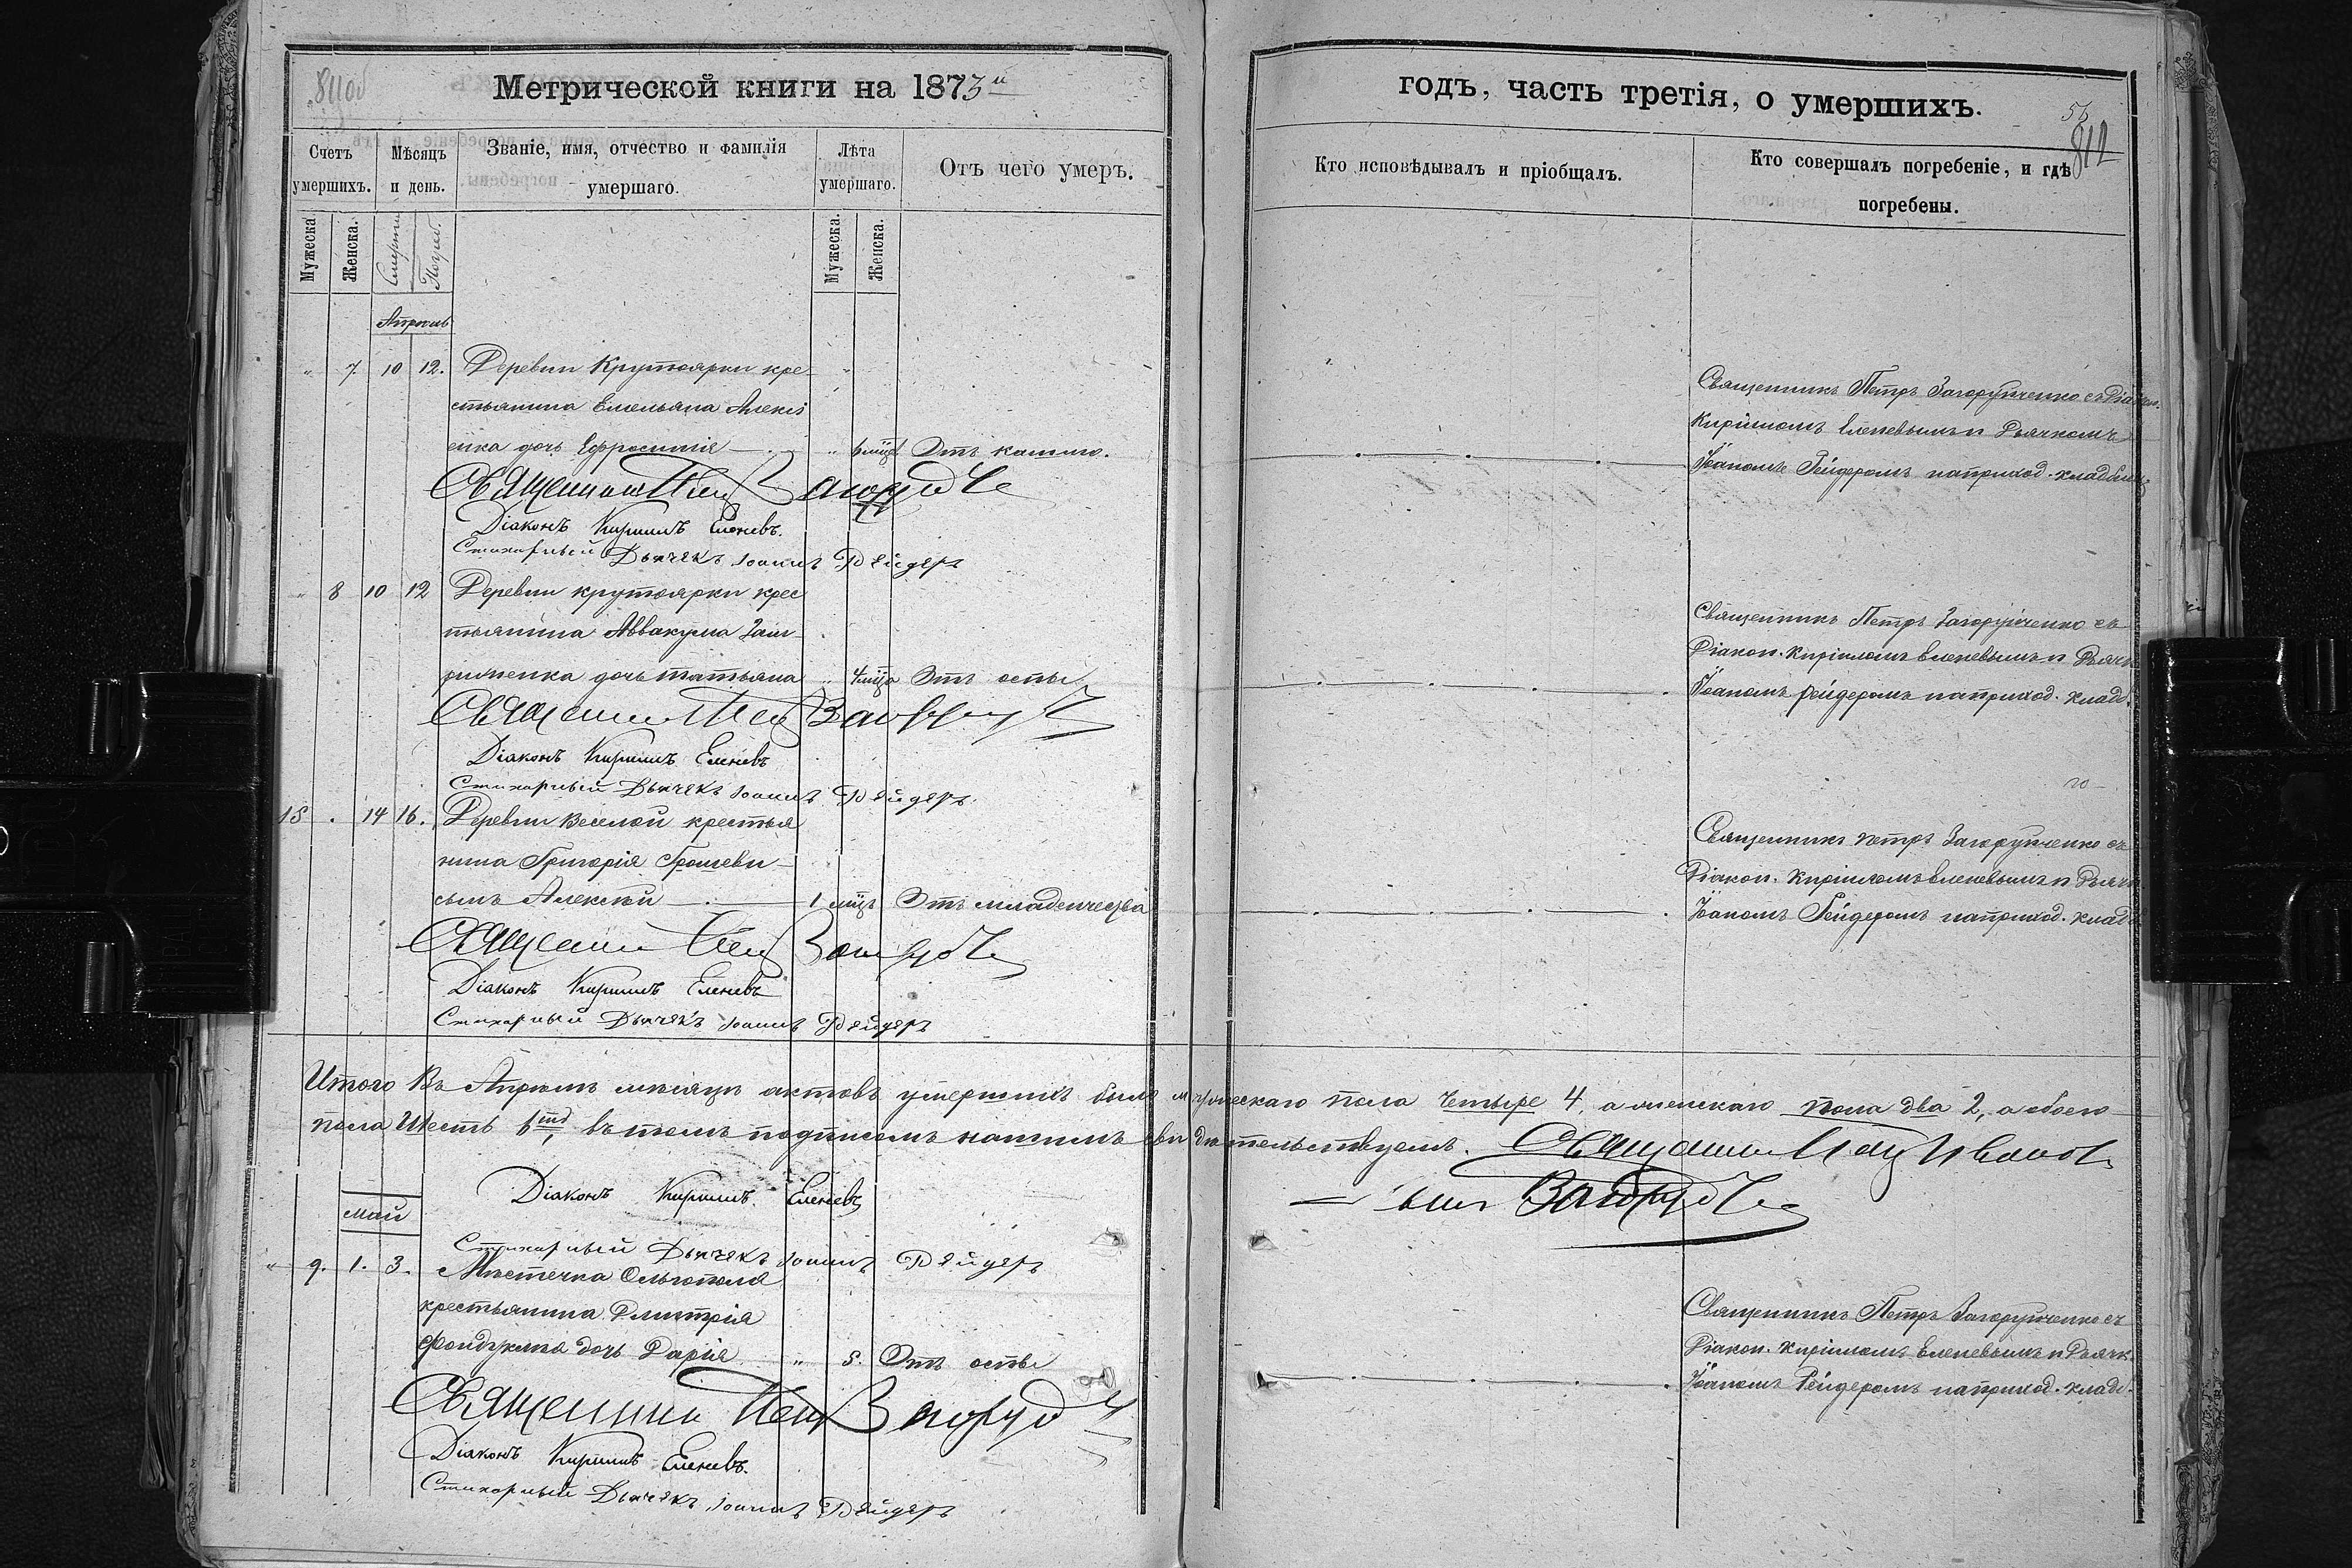 811об
Метрической книги на 1873й
Счетъ умершихъ.
Мѣсяцъ и день.
Званіе, имя, отчество и фамилія умершаго.
Лѣта умершаго.
Отъ чего умеръ.
Мужеска
Женска.
Смерти
Погреб.
Мужеска.
Женска.
Апрель
" 7. 10 12. Деревни Крутоярки кре
стьянина Емельяна Алексѣ
енка дочь Ефросинія " 6 мцъ Отъ кашлю.
Священникъ Петръ
Діаконъ Кириллъ Еленевъ.
Стихарный Дьячекъ Іоаннъ Рейдеръ
" 8 10 12 Деревни Крутоярки крес
тьянина Аввакума
дочь Татьяна " 4 мца Отъ оспы
Священникъ Петръ
Діаконъ Кириллъ Еленевъ
Стихарный Дьячекъ Іоаннъ Рейдеръ.
15 . 14 16. Деревни Веселой крестья
нина Григорія
сынъ Алексѣй 1 мцъ Отъ младенчества
Священникъ Петръ
Діаконъ Кириллъ Еленевъ
Стихарный Дьячекъ Іоаннъ Рейдеръ
Итого Въ Апрѣлѣ мѣсяцѣ актовъ умершихъ было мужескаго пола четыре 4, а женскаго пола два 2, а обоего
пола Шесть 6ть, въ томъ подписомъ нашимъ свидѣтельствуемъ. Священникъ Петръ Ивановъ
сынъ
Діаконъ Кириллъ Еленевъ
Май
Стихарный Дьячекъ Іоаннъ Рейдеръ
" 9. 1. 3. Мѣстечка Ольгополя
крестьянина Дмитрія
дочь Дарія " 5. Отъ оспы
Священникъ Петръ
Діаконъ Кириллъ Еленевъ.
Стихарный Дьячекъ Іоаннъ Рейдеръ
годъ, часть третія, о умершихъ.
55
812
Кто исповѣдывалъ и пріобщалъ.
Кто совершалъ погребеніе, и гдѣ
погребены.
Священникъ Петръ Загоруйченко съ Діакон.
Кириломъ Еленевымъ и Дьячкомъ
Іоаномъ Рейдеромъ на приход. кладбищ
Священникъ Петръ Загоруйченко съ
Діакон. Кириломъ Еленевымъ и Дьячк
Іоаномъ Рейдеромъ на приход. кладб.
Священникъ Петръ Загоруйченко съ
Діакон. Кириломъ Еленевымъ и Дьячк.
Іоаномъ Рейдеромъ на приход. кладб
Священникъ Петръ Загоруйченко съ
Діакон. Кириломъ Еленевымъ и Дьячк.
Іоаномъ Рейдеромъ на приход. кладб.